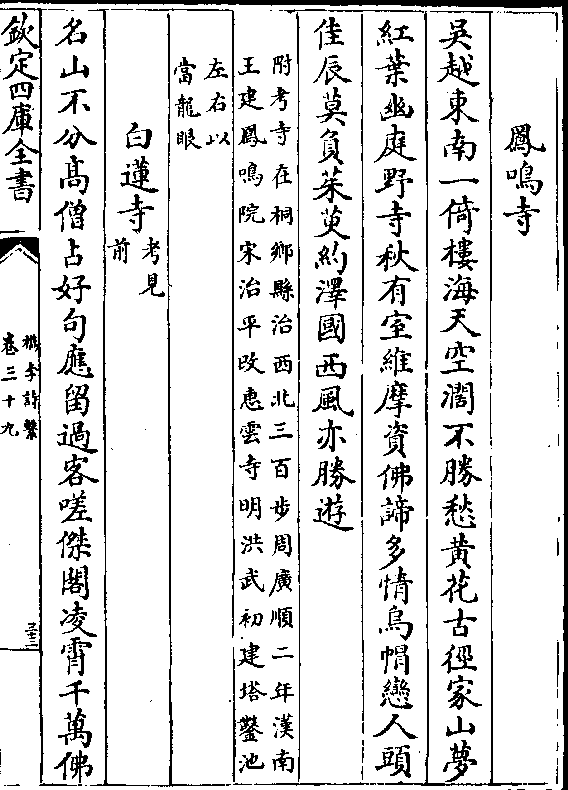 鳳鳴寺
吳越東南一倚樓海天空濶不勝愁黄花古徑家山夢
紅葉幽庭野寺秋有室維摩資佛諦多情烏帽戀人頭
佳辰莫負茱萸約澤國西風亦勝遊
附考寺在桐鄉縣治西北三百步周廣順二年漢南
王建鳳鳴院宋治平改惠雲寺明洪武初建塔鑿池
左右以
當龍眼
白蓮寺
考見
前
名山不分髙僧占好句應留過客嗟傑閣凌霄千萬佛
欽定四庫全書
檇李詩繫
卷三十九
三十三